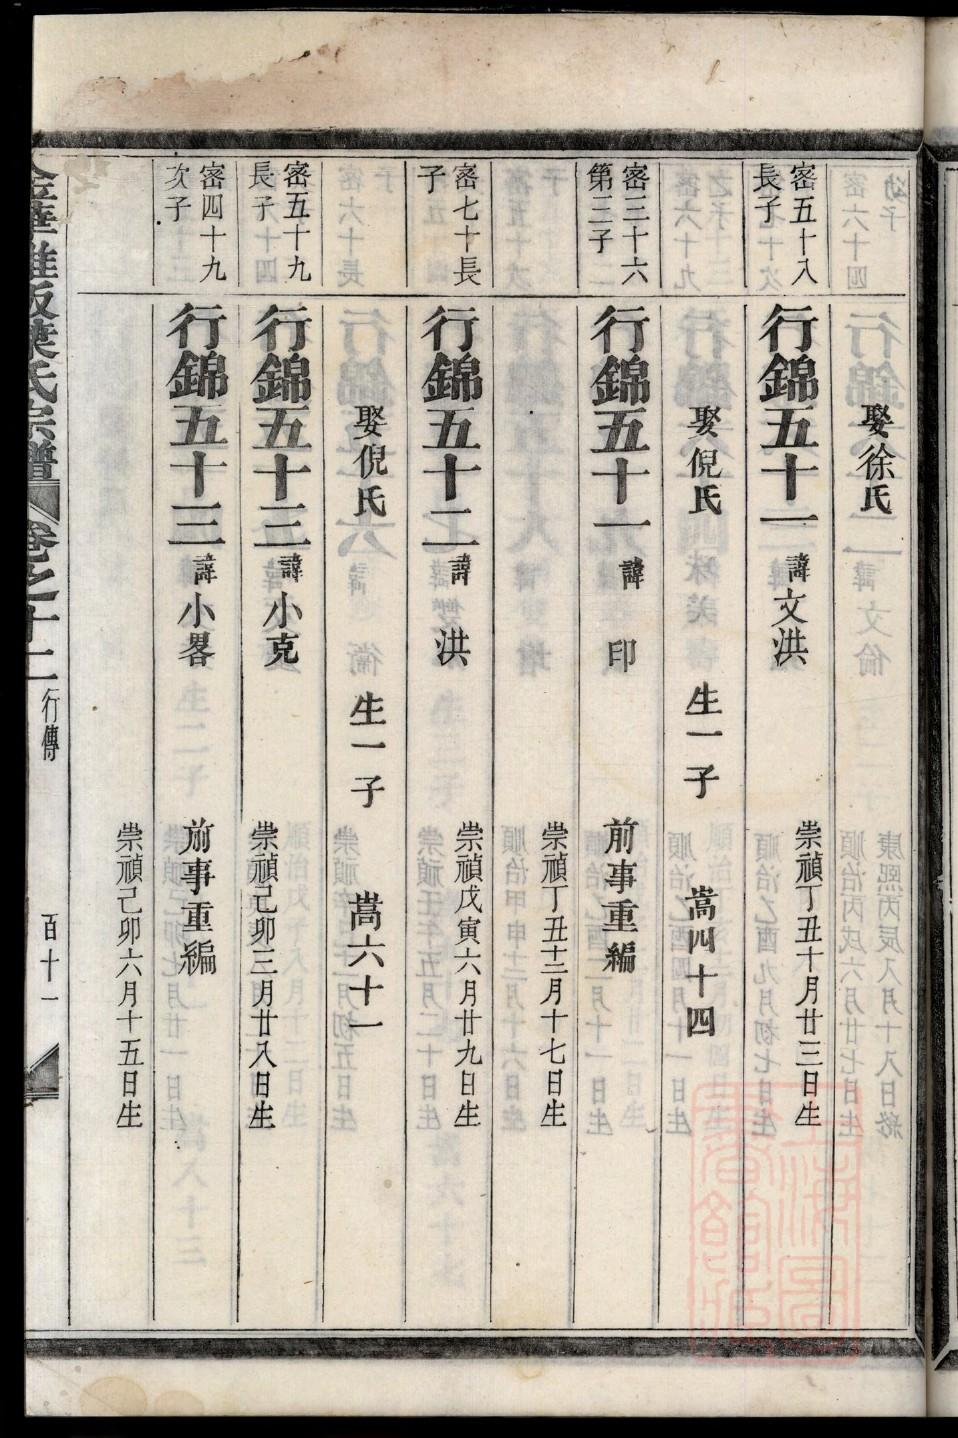 娶徐氏
密五十八長子
行錦五十一 諱文洪
崇禎丁丑十月廿三日生
娶倪氏 生一子 嵩四十四
密三十六第三子
行錦五十一 諱印 前事重編
崇禎丁丑十二月十七日生
密七十長子
行錦五十二 諱洪
崇禎戊寅六月廿九日生
娶倪氏 生一子 嵩六十一
密五十九長子
行錦五十三 諱小克
崇禎己卯三月廿八日生
密四十九次子
行錦五十三 諱小畧 前事重編
崇禎己卯六月十五日生
葉氏宗譜 卷之十二 行傳 百十一